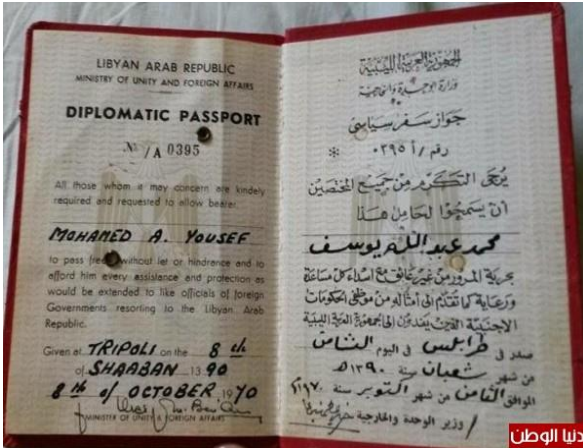 LIBYAN ARAB REPUBLIC
MINISTRY OF UNITY AND FOREIGN AFFAIRS
DIPLOMATIC PASSPORT
Nº /A 0395
All those whom it may concern are kindely
required and requested to allow bearer
MOHAMED A. YOUSEF
to pass freely without let or hindrance and to
afford him every assistance and protection as
would be extended to like officials of foreign
Governments resorting to the Libyan Arab
Republic.
Given at TRIPOLI on the 8 th
of SHAABAN 1390
8 th of OCTOBER 1970
MINISTER OF UNITY & FOREIGN AFFAIRS
الجمهورية العربية الليبية
وزارة الوحدة والخارجية
جواز سفر سياسي
رقم / أ ٠٣٩٥
يرجى التكرم من جميع المختصين
أن يسمحوا لحامل هذا
محمد عبد الله يوسف
بحرية المرور من غير عائق مع اسداء كل مساعدة
ورعاية كما تقدم الى أمثاله من موظفي الحكومات
الاجنبية الذين يفدون الى الجمهورية العربية الليبية
صدر في طرابلس في اليوم الثامن
من شهر شعبان سنة ١٣٩٠ هـ
الموافق الثامن من شهر اكتوبر سنة ١٩٧٠ م
وزير الوحدة والخارجية
دنيا الوطن